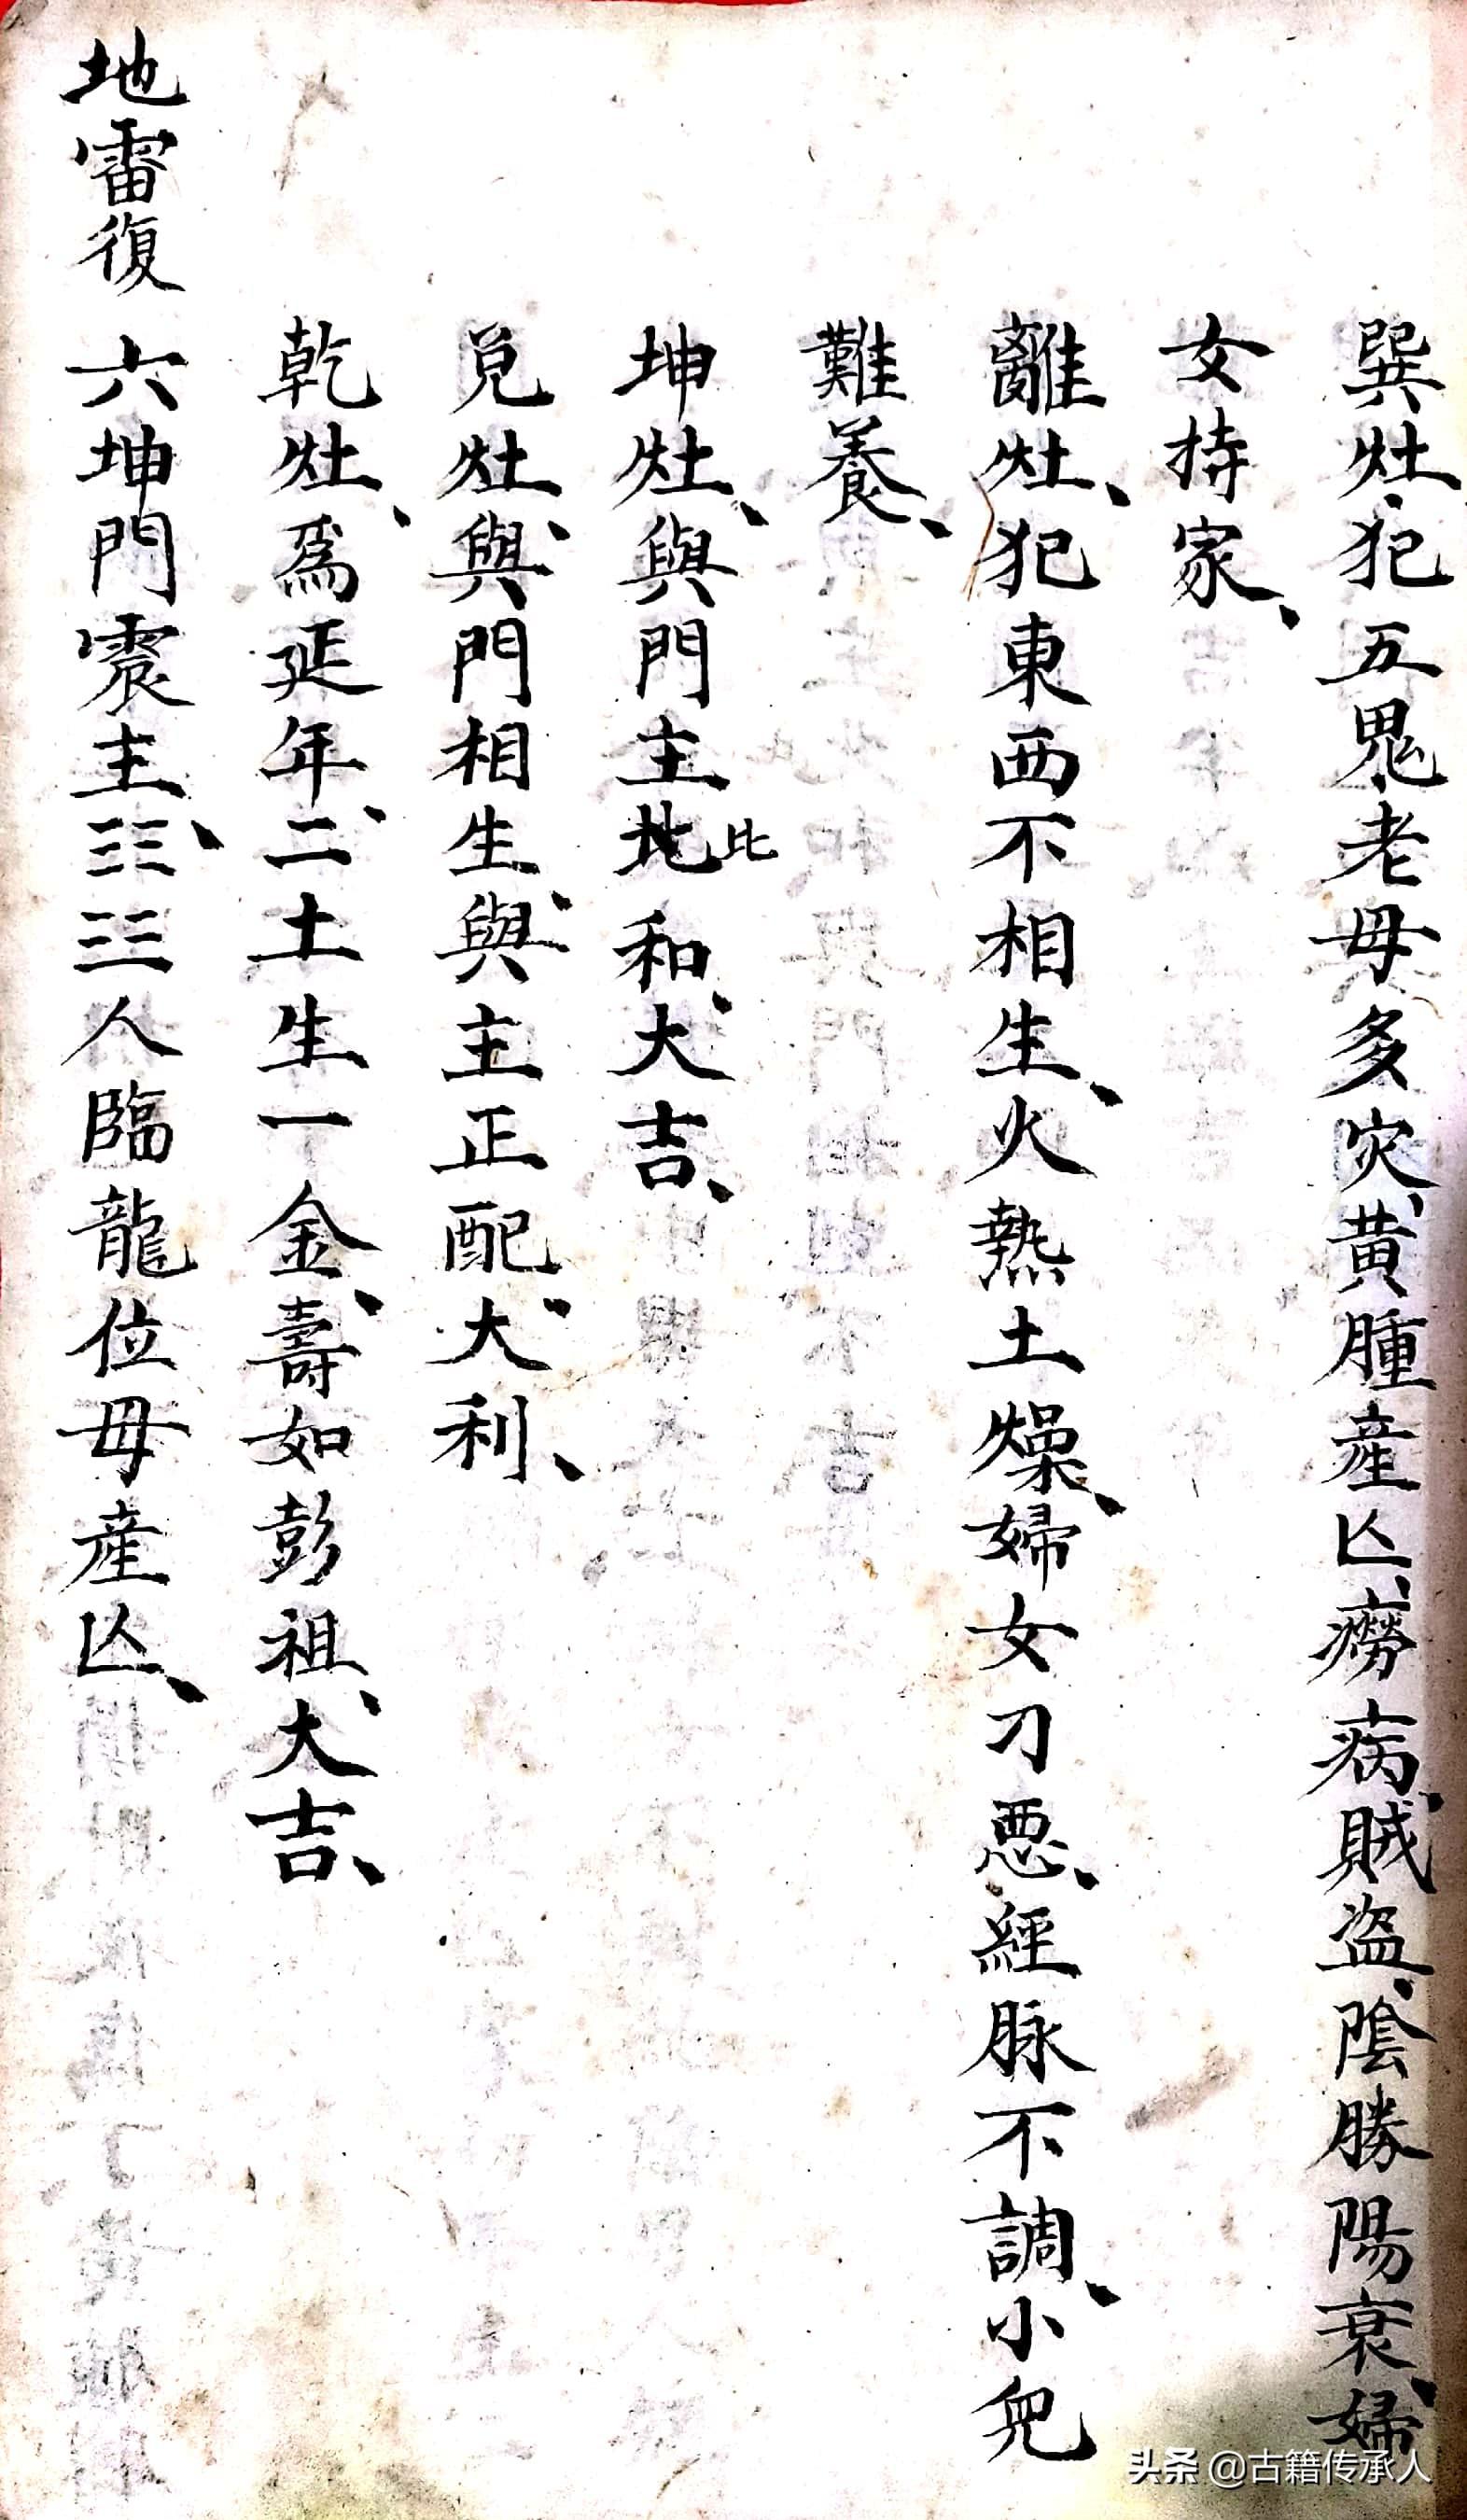 巽灶、犯五鬼、老母多灾、黄腫産亾、癆病、賊盗、陰勝陽衰、婦
女持家、
離灶、犯東西不相生、火熱土燥、婦女刁悪、經脉不調、小兒
難養、
坤灶、與門主地比和、大吉、
兌灶、與門相生、與主正配、大利、
乾灶、爲延年、二土生一金、壽如彭祖、大吉、
地雷復 六坤門震主、☷☳人臨龍位母産亾、
头条 @古籍传承人